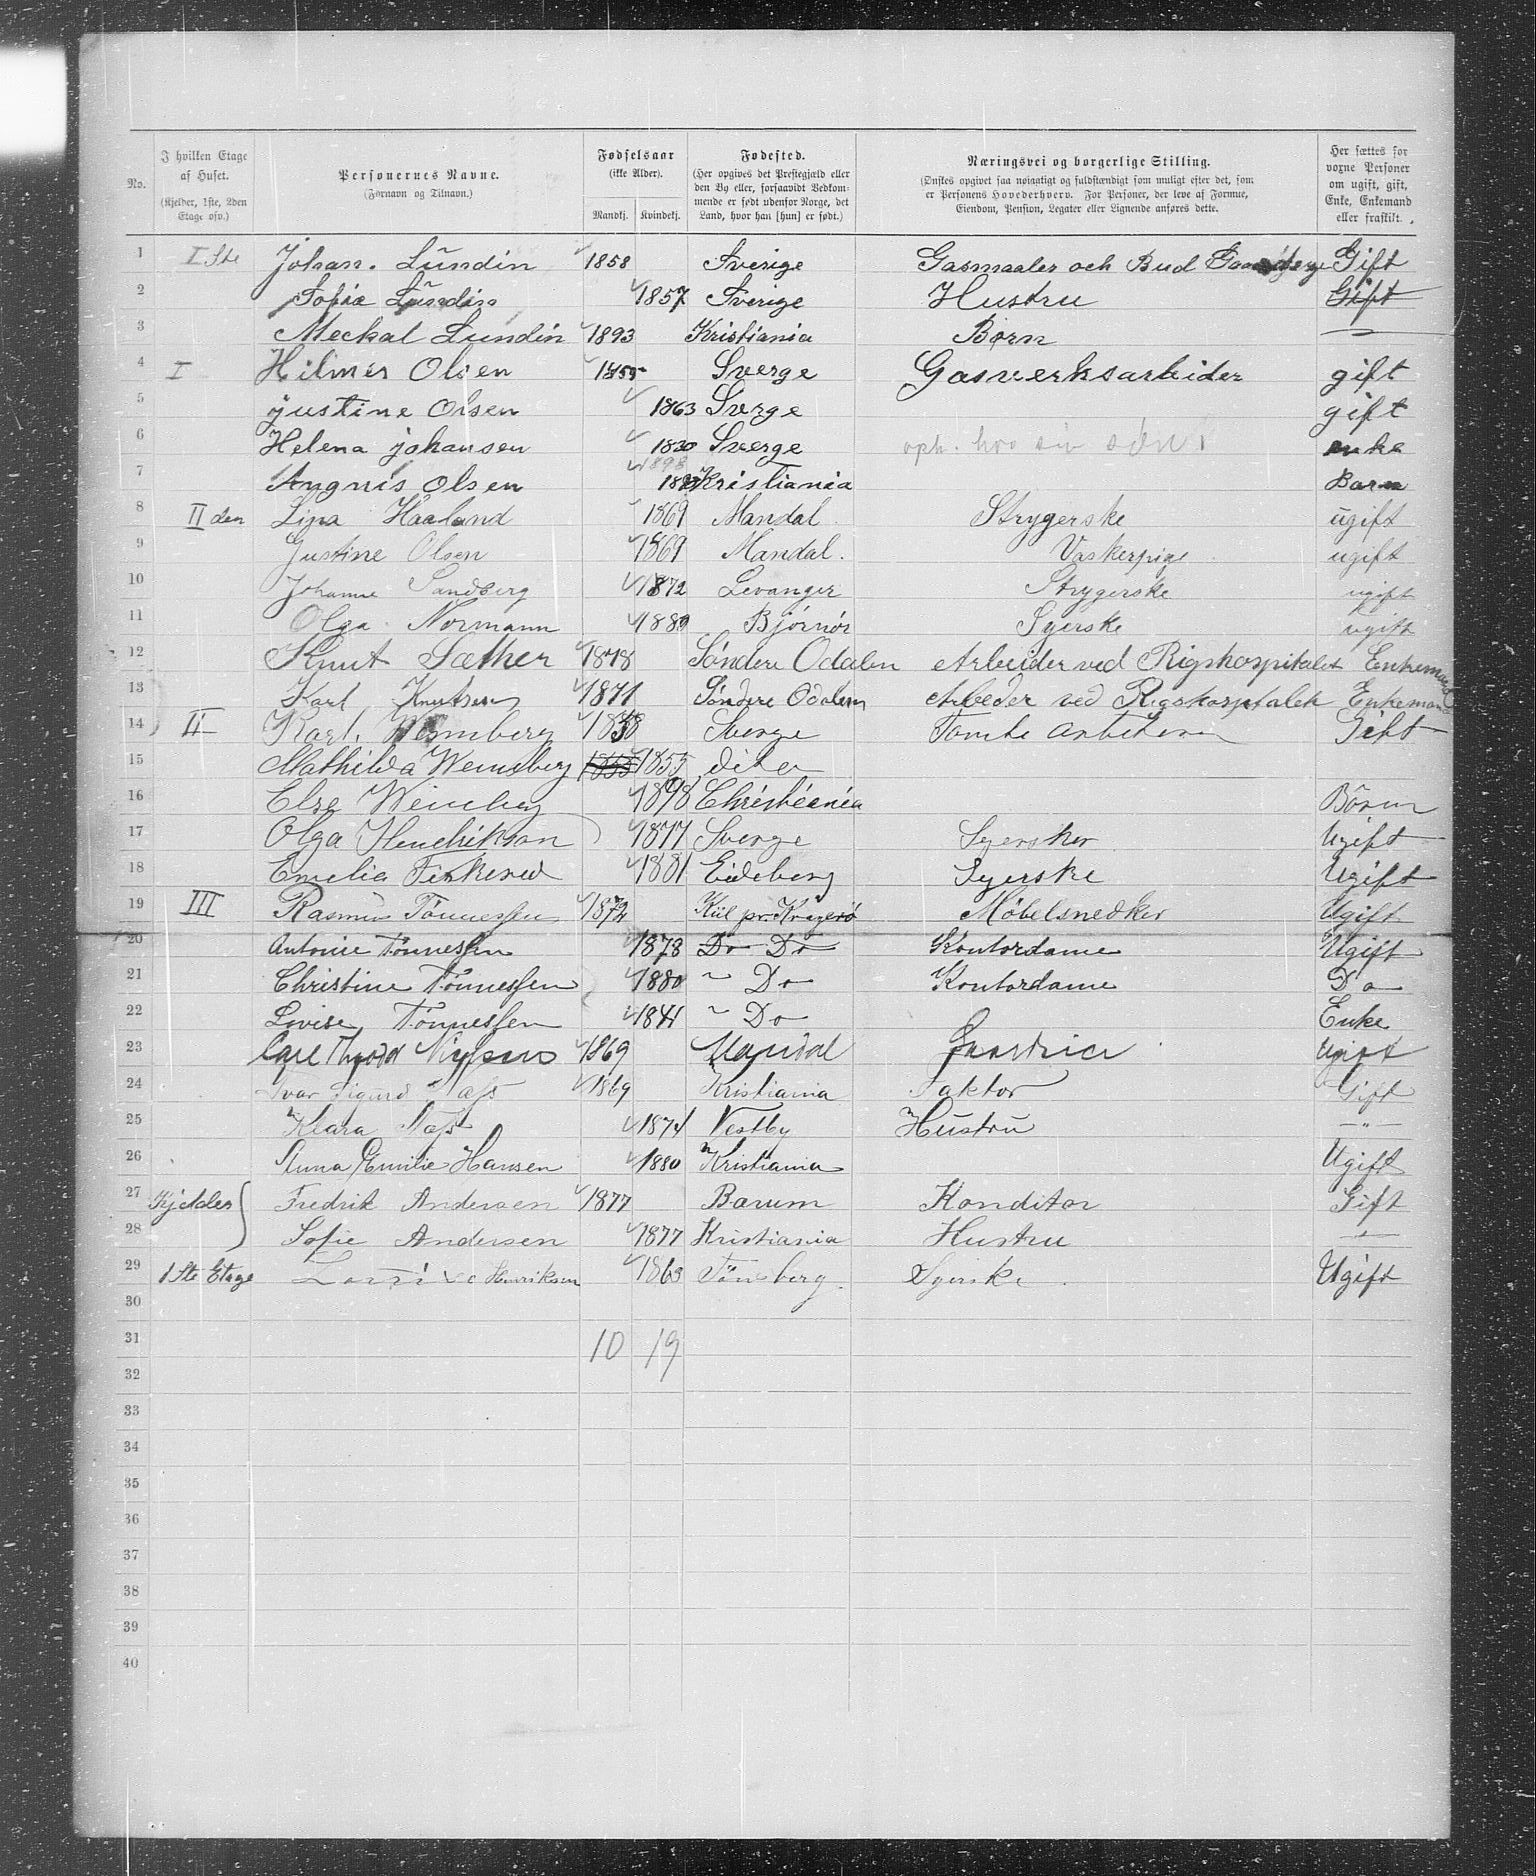 No.
I hvilken Etage af Huset.
(Kjelder, 1ste, 2den Etage osv.)
Personernes Navne.
(Fornavn og Tilnavn.)
Fødselsaar
(ikke Alder).
Mandkj. Kvindekj.
Fødested.
(Her opgives det Prestegjæld eller den By eller, forsaavidt Vedkommende er født udenfor Norge, det Land, hvor han [hun] er født.)
Næringsvei og borgerlige Stilling.
(Ønskes opgivet saa nøiagtigt og fuldstændigt som muligt efter det, som er Personens Hovederhverv. For Personer, der leve af Formue, Eiendom, Pension, Legater eller Lignende anføres dette.
Her sættes for voxne Personer om ugift, gift, Enke, Enkemand eller fraskilt.
1 I Ste Johan. Lundin 1858 Sverige Gasmaaler och Bud Gift
2 Sofia Lundin 1857 Sverige Hustru Gift
3 Meckal Lundin 1893 Kristiania Børn —
4 I Hilmer Olsen 1855 Sverge Gasverksarbeider gift
5 justine Olsen 1863 Sverge gift
6 Helena johansen 1820 Sverge oph. hos sin søn enke
7 Angnis Olsen 1898 Kristiania Barn
8 II den Lina Haaland 1869 Mandal Strygerske ugift
9 Justine Olsen 1869 Mandal. Vaskerpige ugift
10 Johanne Sandberg 1872 Levanger Strygerske ugift
11 Olga Normann 1889 Bjørnør Syerske ugift
12 Knut Sæther 1878 Søndere Odalen Arbeider ved Rigshospitalet Enkemand
13 Karl Knutsen 1871 Søndere Odalen Arbeder ved Rigshospitalet Enkemand
14 II Karl. Wemberg 18 8 Sverge Tomte Gift
15 Mathilda Wemsberg 1855 1855 dito
16 Else Weimberg 1898 Christiania Börn
17 Olga Hendrikson 1877 Sverge Syersker Ugift
18 Emelia 1881 Eideberg Syerske Ugift
19 III Rasmus Tönnessen 1872 Kiil pr. Kragerø Møbelsnedker Ugift
20 Antonie Tönnessen 1878 Do Do Kontordame Ugift
21 Christine Tönnessen 1880 " Do Kontordame Do
22 Lovise Tönnessen 1841 " Do Enke
23 Carl 1869 Mandal Ugift
24 Ivar Sigurd Næss 1869 Kristiania Faktor Gift
25 Klara Næss 1874 Vestby Hustru — " —
26 Anna Emilie Hansen 1880 Kristiania Ugift
27 Kjelder Fredrik Andersen 1877 Bærum Konditor Gift
28 Sofie Andersen 1877 Kristiania Hustru —
29 1 Ste Etage Lovise Henriksen 1863 Tönsberg. Syerske Ugift
30
31 10 19
32
33
34
35
36
37
38
39
40